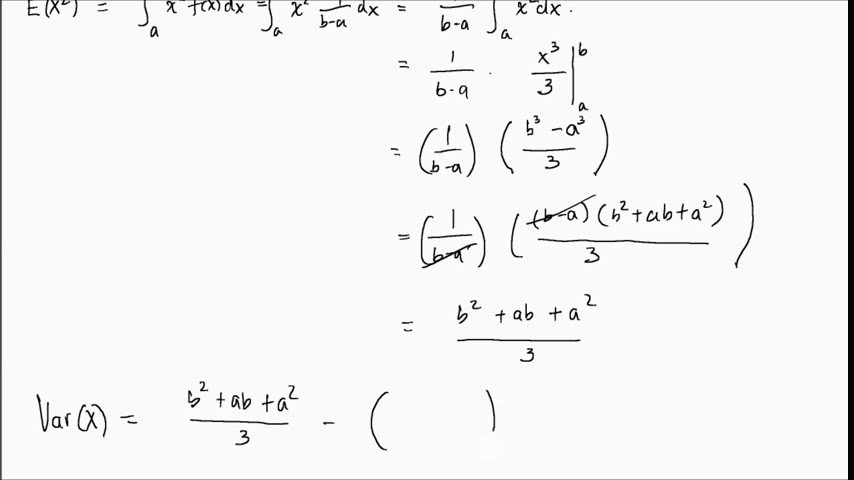 E(X²) = ∫ₐ x² f(x) dx = ∫ₐ x² 1/(b-a) dx = 1/(b-a) ∫ₐ x² dx.
= 1/(b-a) · x³/3 |ₐᵇ
= (1/(b-a)) ((b³ - a³)/3)
= (1/(b-a)) ((b-a)(b² + ab + a²)/3)
= (b² + ab + a²)/3
Var(X) = (b² + ab + a²)/3 - ( )